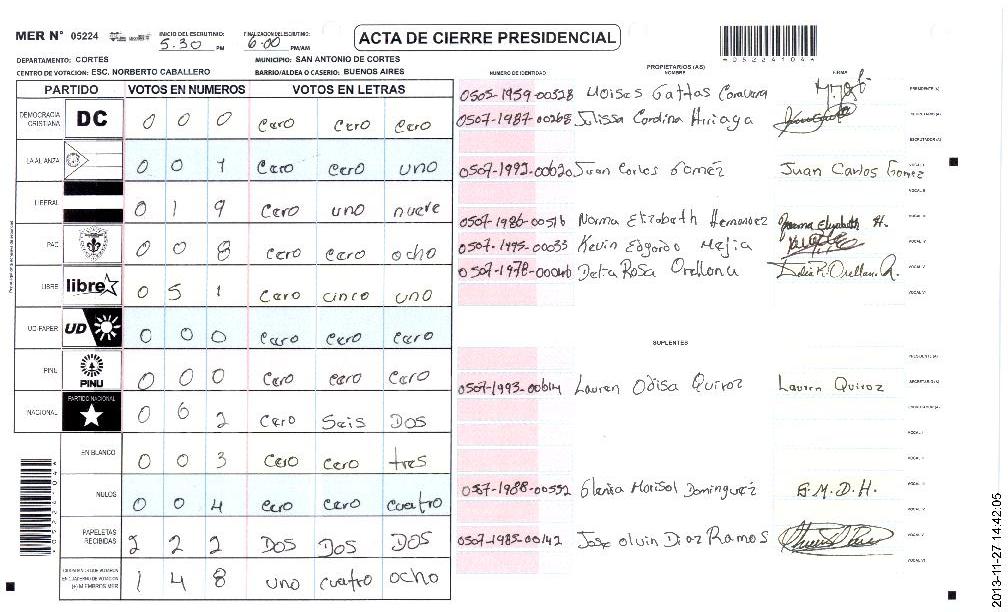 MER N° 05224
INICIO DEL ESCRUTINIO: 5.30 PM
FINALIZACION DEL ESCRUTINIO: 6:00 PM/AM
ACTA DE CIERRE PRESIDENCIAL
*05224104*
DEPARTAMENTO: CORTES
MUNICIPIO: SAN ANTONIO DE CORTES
CENTRO DE VOTACION: ESC. NORBERTO CABALLERO
BARRIO/ALDEA O CASERIO: BUENOS AIRES
PARTIDO VOTOS EN NUMEROS VOTOS EN LETRAS
DEMOCRACIA CRISTIANA DC 0 0 0 cero cero cero
LA ALIANZA 0 0 1 cero cero uno
LIBERAL 0 1 9 cero uno nueve
PAC 0 0 8 cero cero ocho
LIBRE libre 0 5 1 cero cinco uno
UD-FAPER UD 0 0 0 cero cero cero
PINU PINU 0 0 0 cero cero cero
NACIONAL PARTIDO NACIONAL 0 6 2 cero Seis DOS
EN BLANCO 0 0 3 cero cero tres
NULOS 0 0 4 cero cero cuatro
PAPELETAS RECIBIDAS 2 2 2 DOS DOS DOS
CIUDADANOS QUE VOTARON EN CUADERNO DE VOTACION (+) MIEMBROS MER 1 4 8 uno cuatro ocho
PROPIETARIOS (AS)
NUMERO DE IDENTIDAD NOMBRE FIRMA
0505-1959-00328 Moises Gattas PRESIDENTE (A)
0507-1987-00268 Julissa Carolina Arriaga SECRETARIO (A)
ESCRUTADOR (A)
0507-1992-00620 Juan Carlos Goméz Juan Carlos Gomez VOCAL I
VOCAL II
0507-1986-00516 Norma Elizabeth Hernandez Norma Elizabeth H. VOCAL III
0507-1995-00033 Kevin Edgardo Mejia VOCAL IV
0507-1978-00040 Delia Rosa Orellana Delia R. Orellana VOCAL V
VOCAL VI
SUPLENTES
PRESIDENTE (A)
0507-1993-00614 Lauren Odisa Quiroz Lauren Quiroz SECRETARIO (A)
ESCRUTADOR (A)
VOCAL I
VOCAL II
0507-1988-00552 Glenia Marisol Dominguéz G.M.D.H.
0507-1985-00142 Jose olvin Diaz Ramos VOCAL V
VOCAL VI
*05224104*
2013-11-27 14:42:05